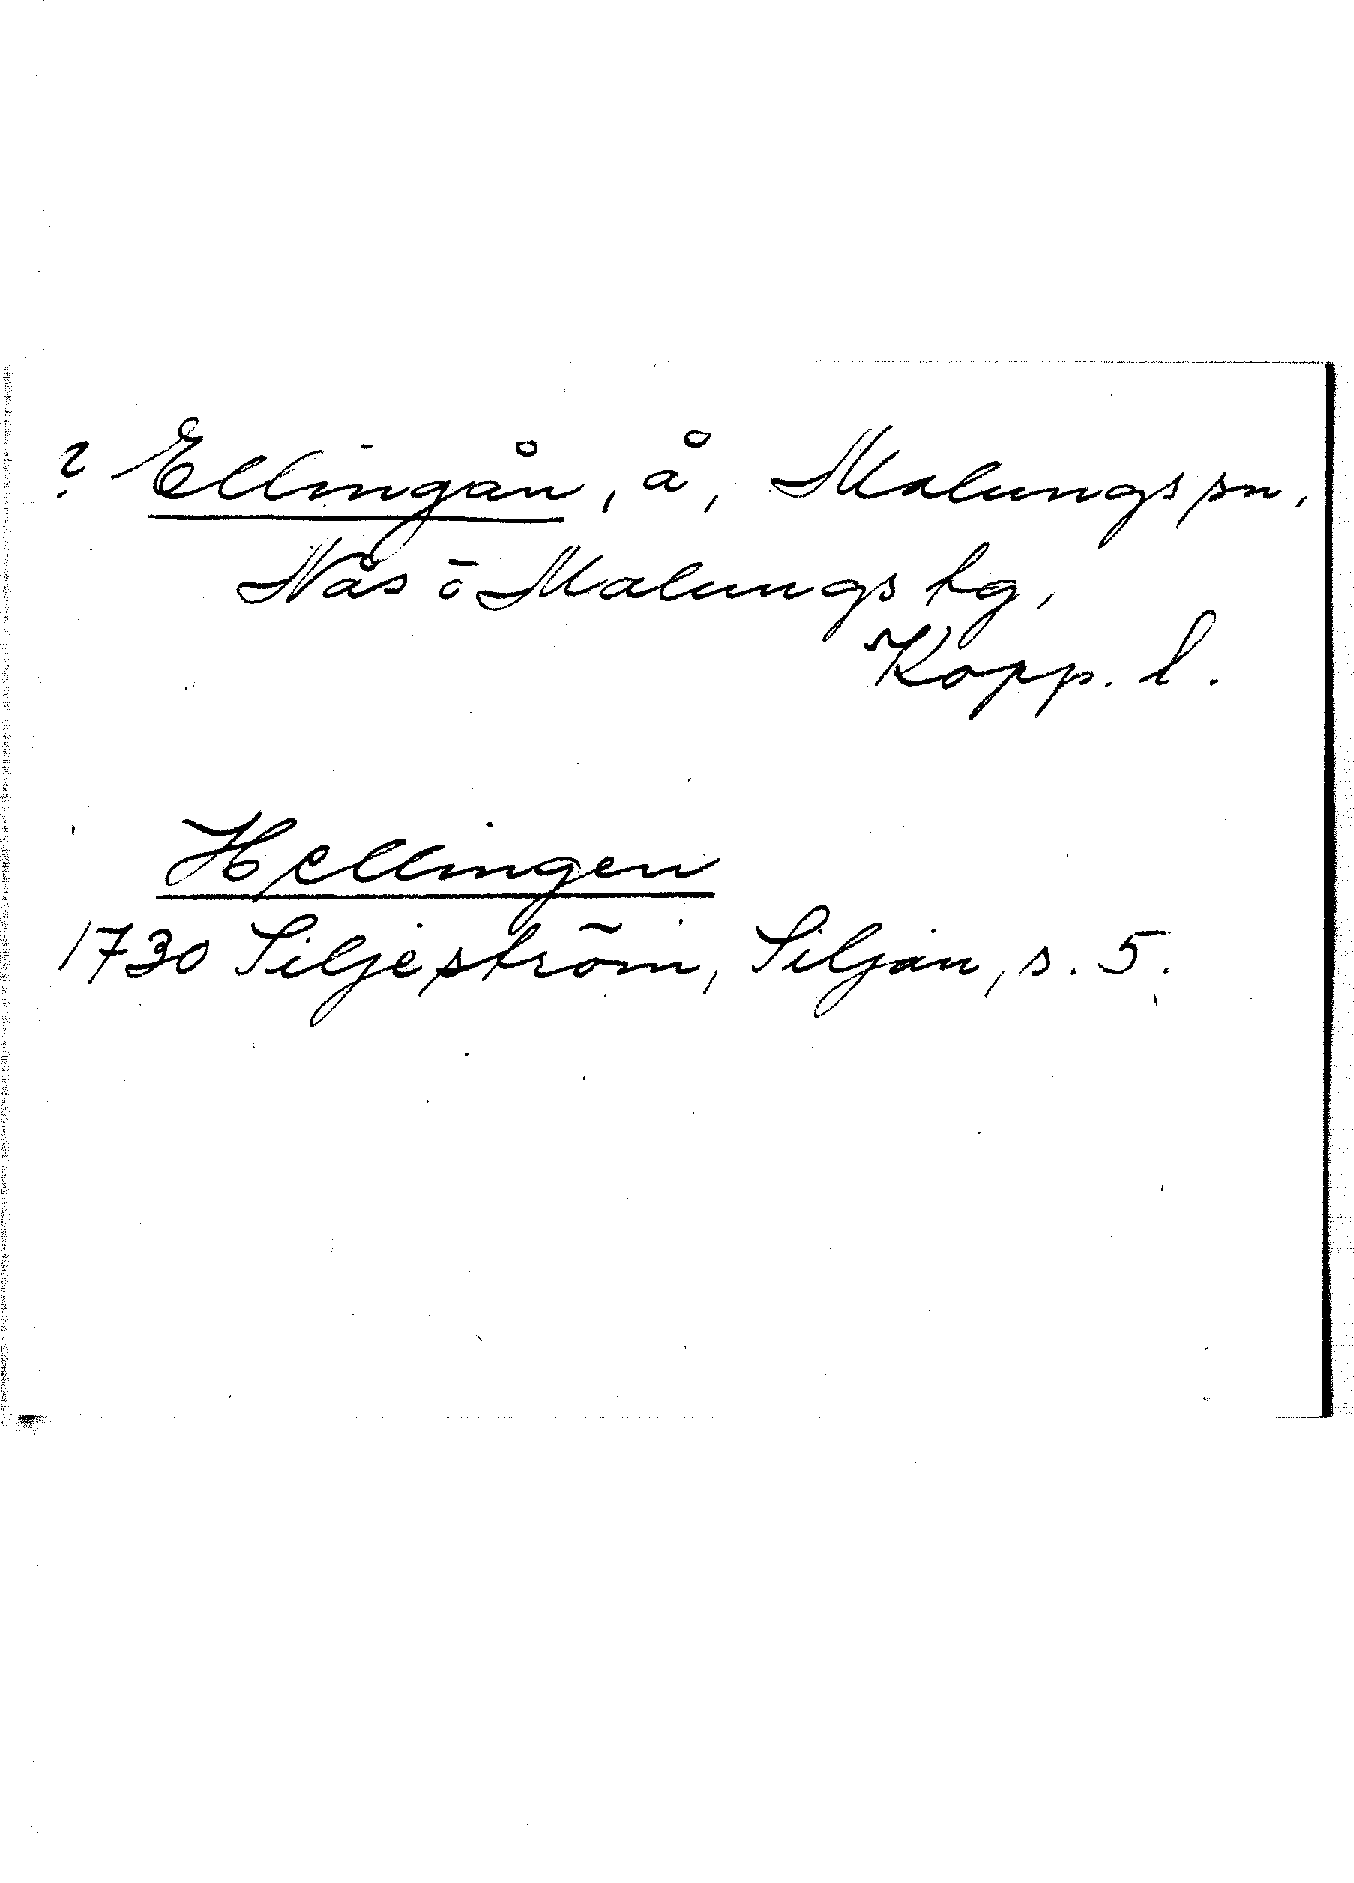 ? Ellingån, å, Malungs sn,
Nås o Malungs tg,
Kopp. l.
Hellingen
1730 Siljeström, Siljan, s. 5.